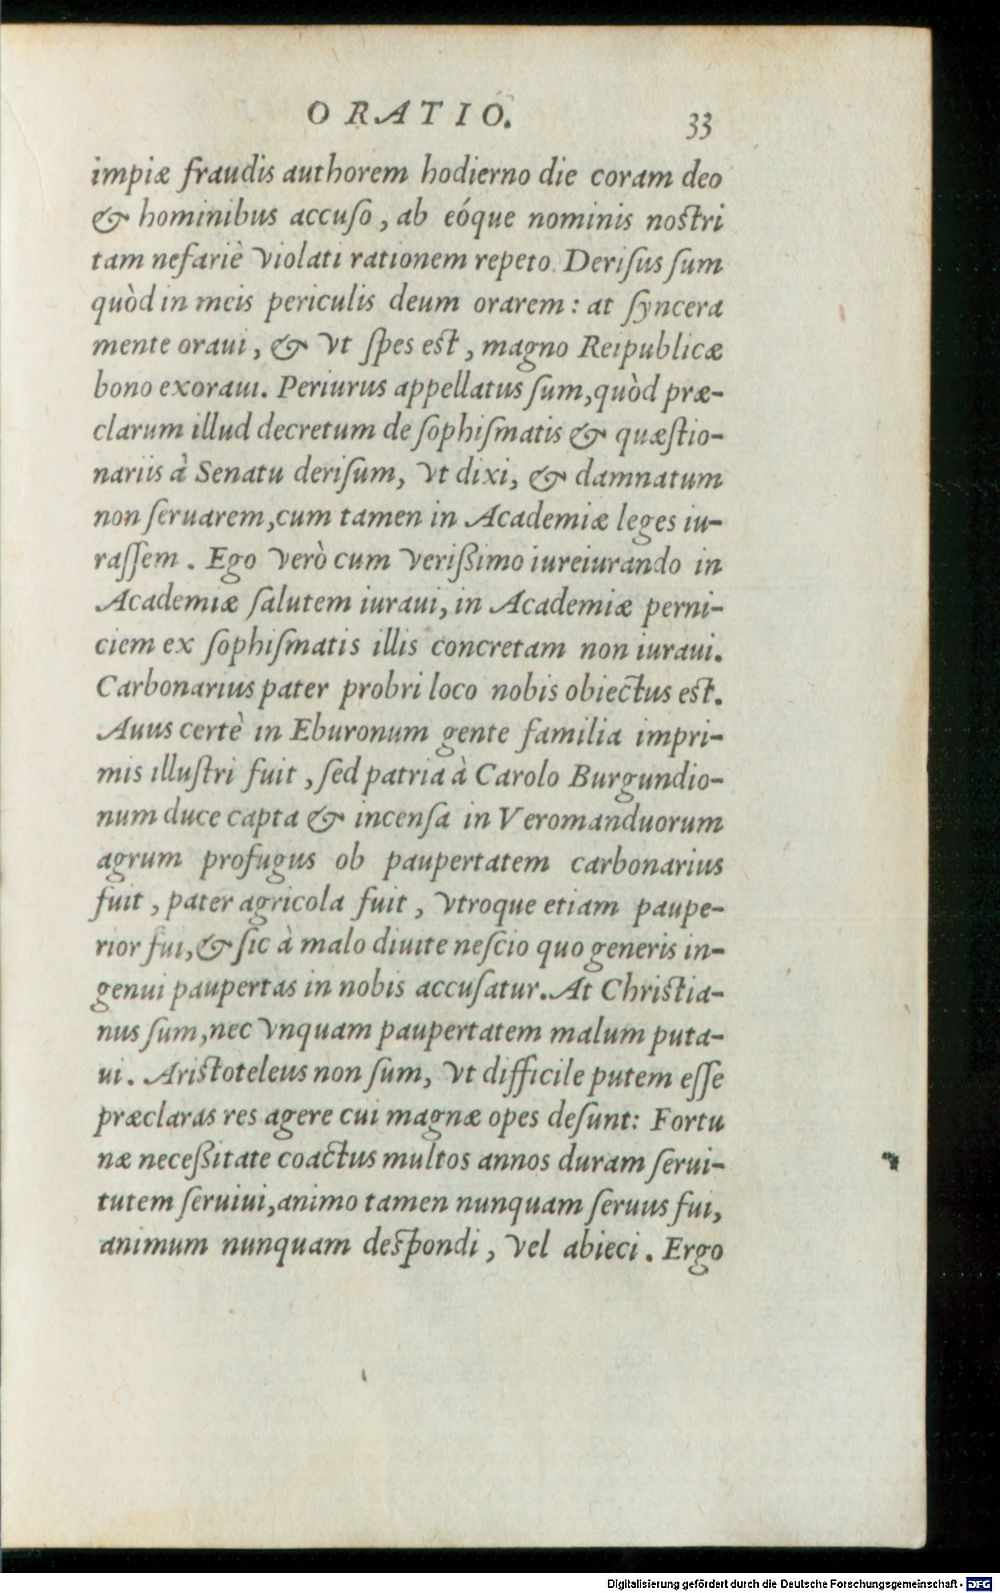 ORATIO.
33
impiæ fraudis authorem hodierno die coram deo
& hominibus accuſo, ab eóque nominis noſtri
tam nefariè violati rationem repeto. Deriſus ſum
quòd in meis periculis deum orarem: at ſyncera
mente oraui, & vt ſpes eſt, magno Reipublicæ
bono exoraui. Periurus appellatus ſum, quòd præ-
clarum illud decretum de ſophiſmatis & quæſtio-
nariis à Senatu deriſum, vt dixi, & damnatum
non ſeruarem, cum tamen in Academiæ leges iu-
raſſem. Ego verò cum verißimo iureiurando in
Academiæ ſalutem iuraui, in Academiæ perni-
ciem ex ſophiſmatis illis concretam non iuraui.
Carbonarius pater probri loco nobis obiectus eſt.
Auus certè in Eburonum gente familia impri-
mis illuſtri fuit, ſed patria à Carolo Burgundio-
num duce capta & incenſa in Veromanduorum
agrum profugus ob paupertatem carbonarius
fuit, pater agricola fuit, vtroque etiam paupe-
rior fui, & ſic à malo diuite neſcio quo generis in-
genui paupertas in nobis accuſatur. At Chriſtia-
nus ſum, nec vnquam paupertatem malum puta-
ui. Ariſtoteleus non ſum, vt difficile putem eſſe
præclaras res agere cui magnæ opes deſunt: Fortu
næ neceßitate coactus multos annos duram ſerui-
tutem ſeruiui, animo tamen nunquam ſeruus fui,
animum nunquam deſpondi, vel abieci. Ergo
Digitalisierung gefördert durch die Deutsche Forschungsgemeinschaft - DFG